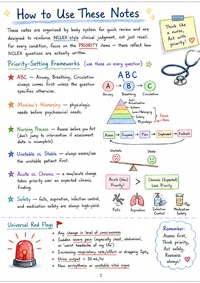 How to Use These Notes
These notes are organized by body system for quick review and are
designed to reinforce NCLEX-style clinical judgment, not just recall.
For every condition, focus on the PRIORITY items — these reflect how
NCLEX questions are actually written.
Think like
a nurse.
Act with
priority!
Priority-Setting Frameworks (use these on every question)
ABC — Airway, Breathing, Circulation
always comes first unless the question
specifies otherwise.
ABC
A
B
C
Airway
Breathing
Circulation
Maslow's Hierarchy — physiologic
needs before psychosocial needs.
Nursing Process — Assess before you Act
(don't jump to intervention if assessment
data is incomplete).
Assess
Diagnose
Plan
Implement
Evaluate
Unstable vs. Stable — always assess/see
the unstable patient first.
Acute vs. Chronic — a new/acute change
takes priority over an expected chronic
finding.
Acute (New)
Priority!
>
Chronic (Expected)
Less Priority
Safety — falls, aspiration, infection control,
and medication safety are always high-yield.
Falls
Aspiration
Infection
Control
Medication
Safety
Universal Red Flags
Any change in level of consciousness
Sudden severe pain (especially chest, abdominal,
or "worst headache of my life")
Increasing respiratory rate/effort or dropping SpO₂
Urine output < 30 mL/hr
New arrhythmia or unstable vital signs
Remember:
Assess first,
Think priority,
Act safely,
Reassess
always!